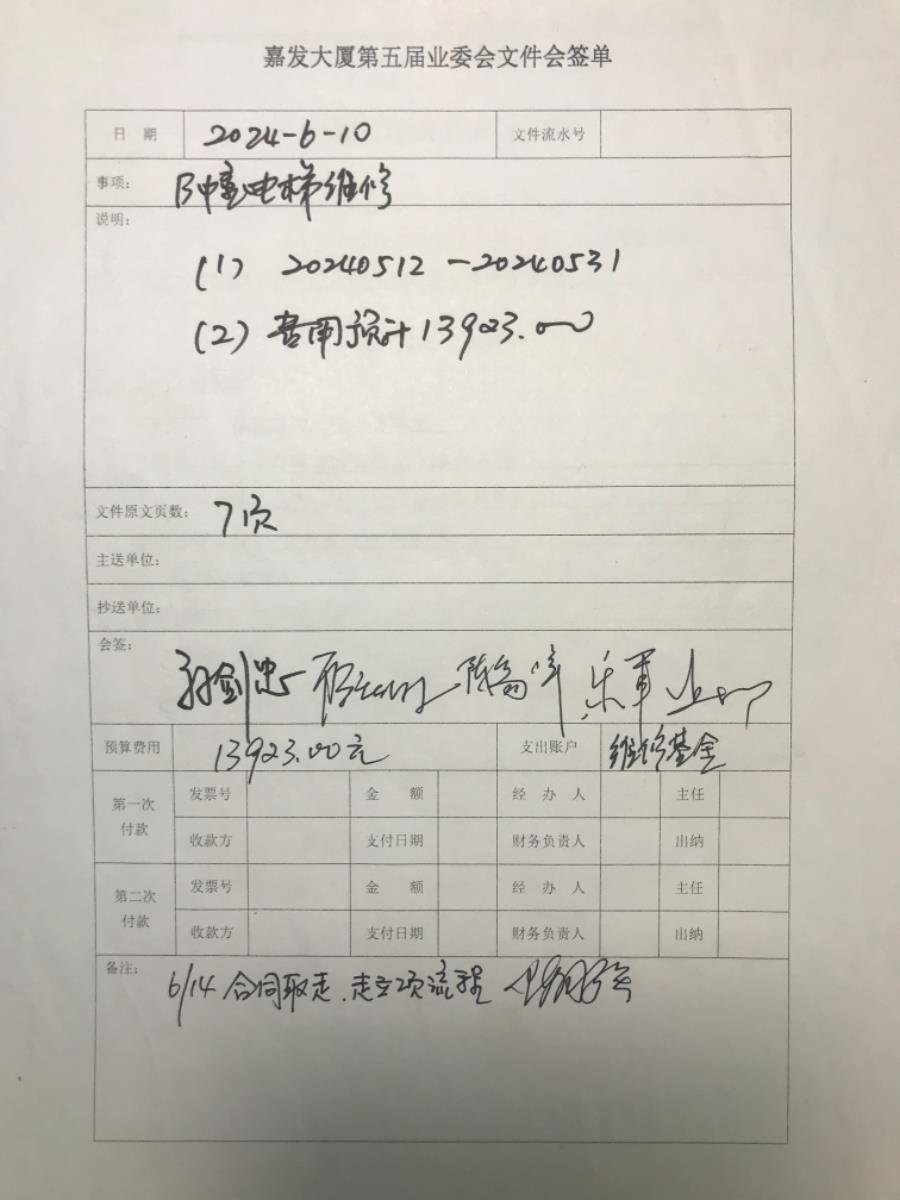 嘉发大厦第五届业委会文件会签单
日 期 2024-6-10 文件流水号
事项： B幢电梯维修
说明：
(1) 20240512-20240531
(2) 费用预计13923.00
文件原文页数： 7页
主送单位：
抄送单位：
会签：
孙剑忠 陈高峰 乐军
预算费用 13923.00元 支出账户 维修基金
第一次付款 发票号 金 额 经 办 人 主任
收款方 支付日期 财务负责人 出纳
第二次付款 发票号 金 额 经 办 人 主任
收款方 支付日期 财务负责人 出纳
备注： 6/14 合同取走、走立项流程